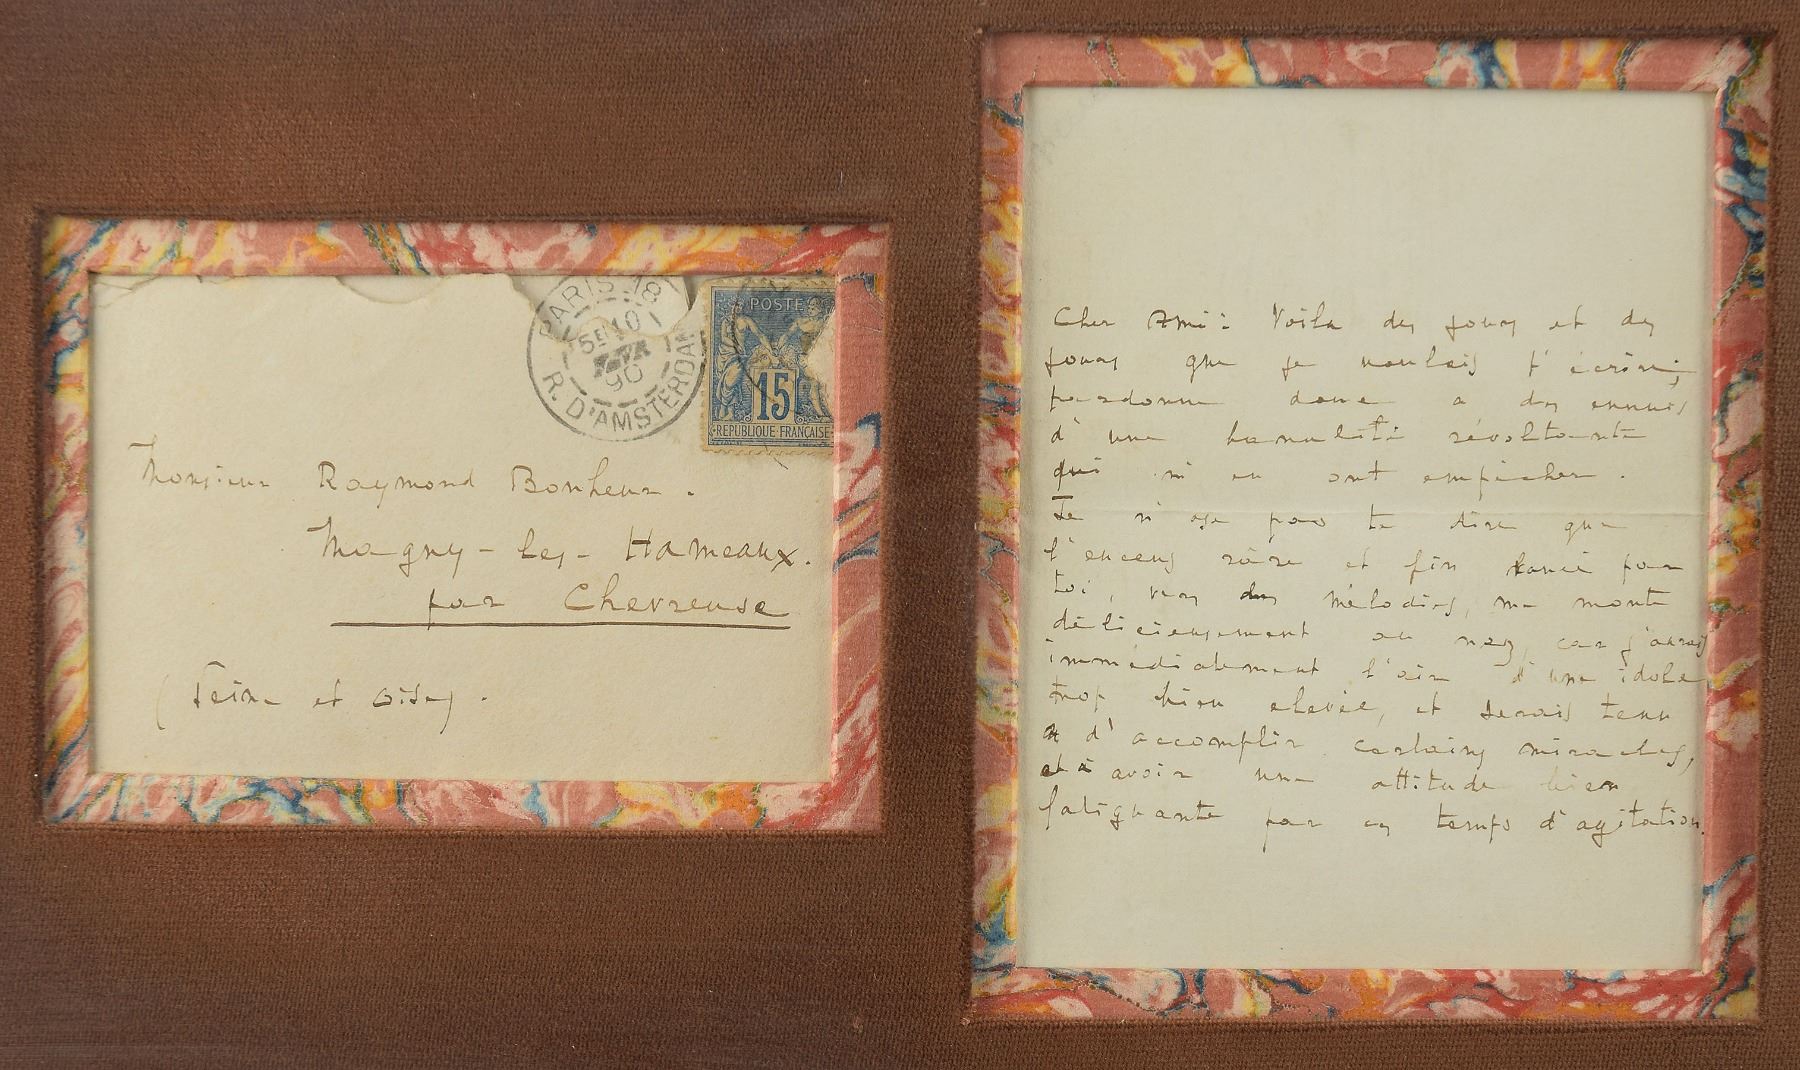 PARIS 18
10
90
R. D'AMSTERDAM
POSTE
15
REPUBLIQUE FRANÇAISE
Monsieur Raymond Bonheur.
Magny-les-Hameaux.
par Chevreuse
(Seine et Oise).
Cher Ami: Voila des jours et des
jours que je voulais t'écrire;
pardonne donc a des ennuis
d'une banalité révoltante
qui m'en ont empêcher.
Je n'ose pas te dire que
l'encens rare et fin lancé par
toi, vers des mélodies, me monte
délicieusement au nez, car j'aurais
immédiatement l'air d'une idole
trop bien elevée, et serais tenu
a d'accomplir certains miracles,
et à avoir une attitude bien
fatiguante par ces temps d'agitation.